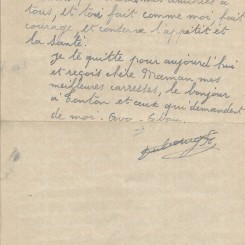 tous, et toi fait comme moi, fait
courage, et conserve l'appétit et
la Santé.
je te quitte pour aujourd'hui
et reçois chère Maman mes
meilleures caresses, le bonjour
à Tonton et ceux qui demandent
de moi.